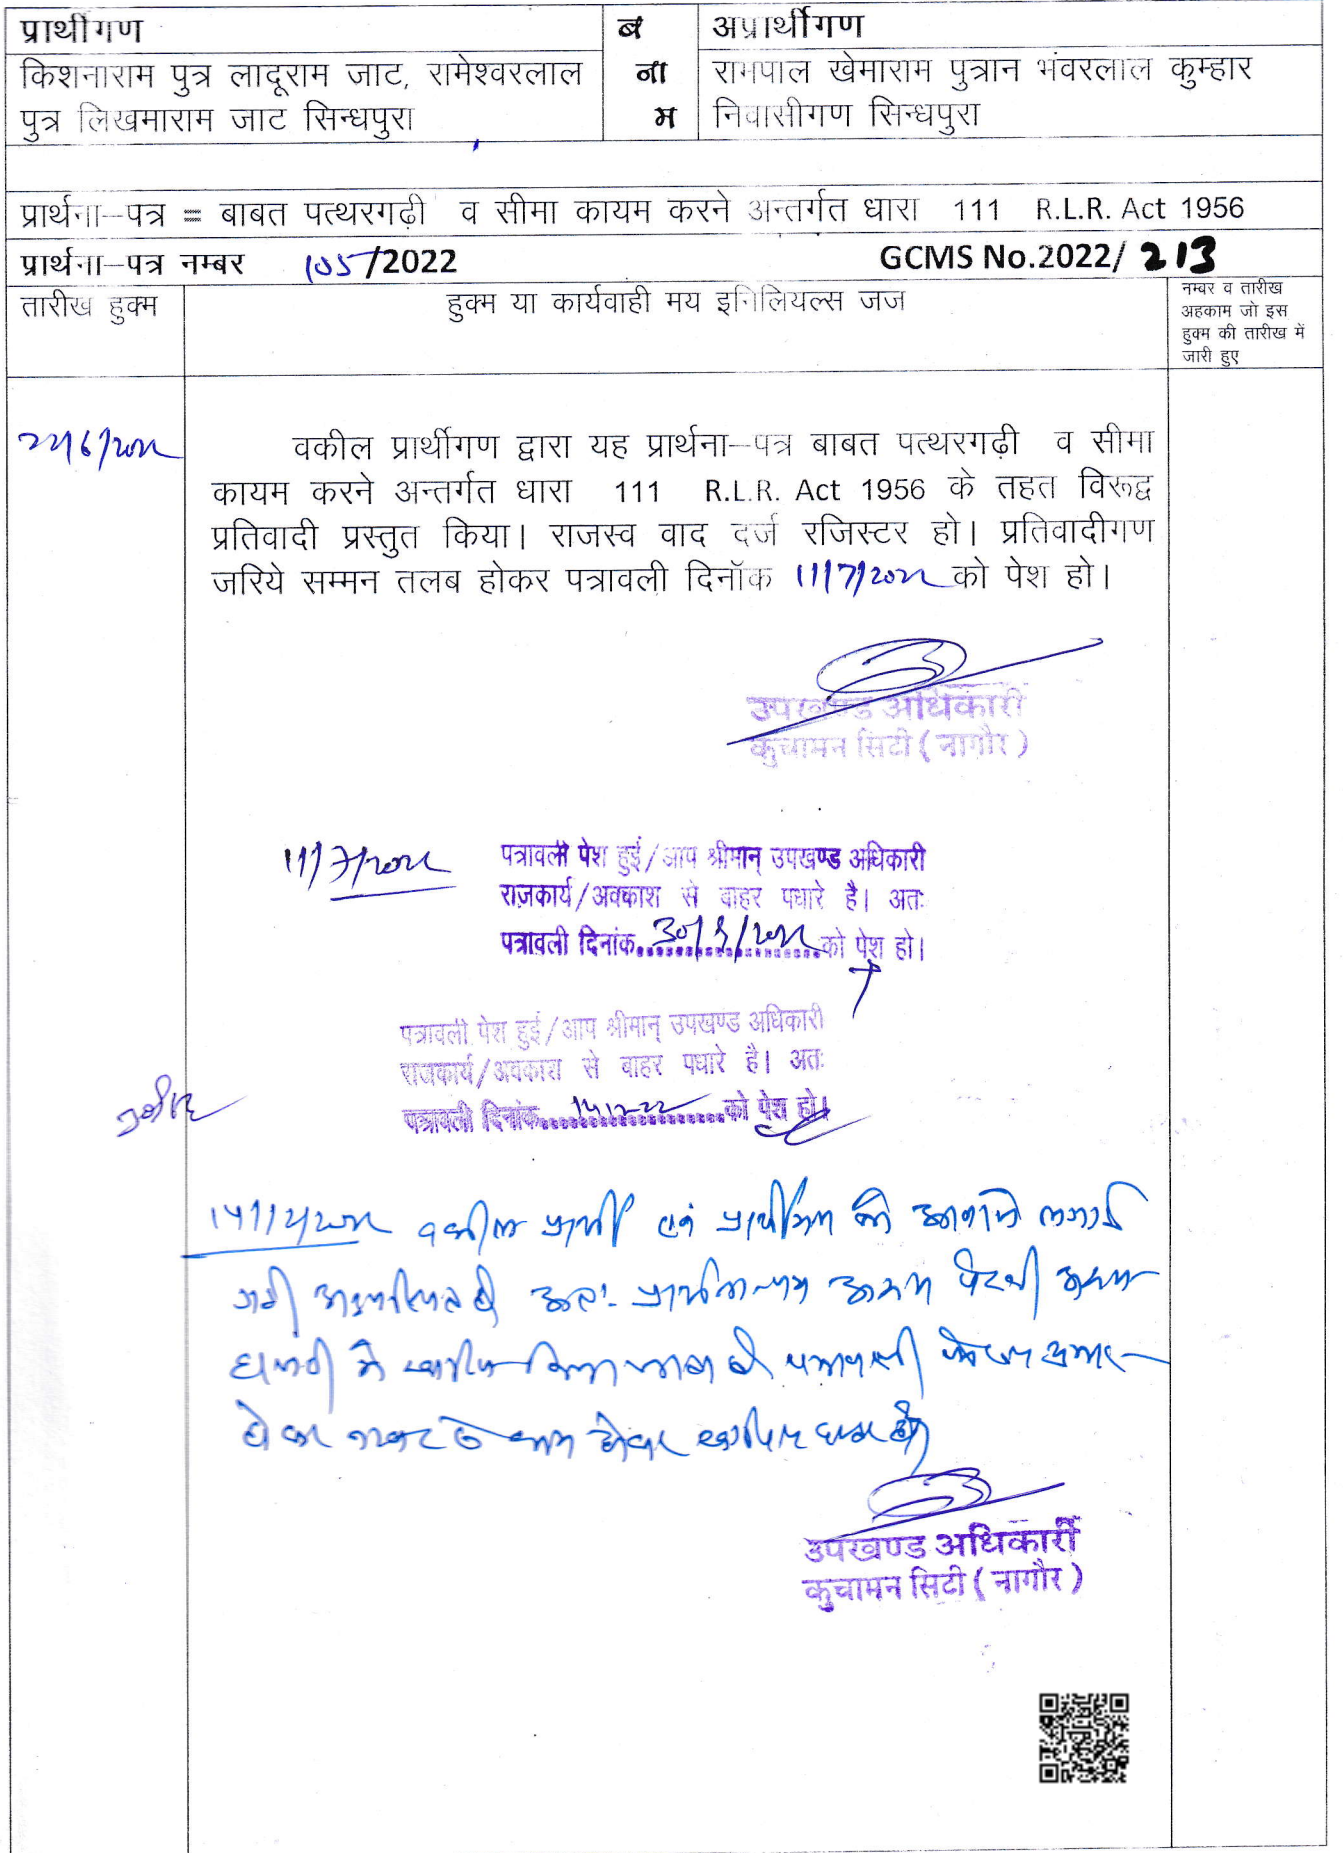 प्रार्थीगण
ब
ना
म
अप्रार्थीगण
किशनाराम पुत्र लादूराम जाट, रामेश्वरलाल
पुत्र लिखमाराम जाट सिन्धपुरा
रामपाल खेमाराम पुत्रान भंवरलाल कुम्हार
निवासीगण सिन्धपुरा
प्रार्थना–पत्र = बाबत पत्थरगढ़ी व सीमा कायम करने अन्तर्गत धारा 111 R.L.R. Act 1956
प्रार्थना–पत्र नम्बर 105/2022 GCMS No.2022/ 213
तारीख हुक्म
हुक्म या कार्यवाही मय इनिलियल्स जज
नम्बर व तारीख
अहकाम जो इस
हुक्म की तारीख में
जारी हुए
22/6/2022
वकील प्रार्थीगण द्वारा यह प्रार्थना–पत्र बाबत पत्थरगढ़ी व सीमा
कायम करने अन्तर्गत धारा 111 R.L.R. Act 1956 के तहत विरूद्व
प्रतिवादी प्रस्तुत किया। राजस्व वाद दर्ज रजिस्टर हो। प्रतिवादीगण
जरिये सम्मन तलब होकर पत्रावली दिनॉक 11/7/2022 को पेश हो।
उपखण्ड अधिकारी
कुचामन सिटी ( नागौर )
11/7/2022
पत्रावली पेश हुई/आप श्रीमान् उपखण्ड अधिकारी
राजकार्य/अवकाश से बाहर पधारे है। अतः
पत्रावली दिनांक को पेश हो।
पत्रावली पेश हुई/आप श्रीमान् उपखण्ड अधिकारी
राजकार्य/अवकाश से बाहर पधारे है। अतः
पत्रावली दिनांक को पेश हो।
वकील प्रार्थी एवं प्रार्थीगण को आवाजे लगाई
गयी अनुपस्थित है अतः प्रार्थना पत्र अदम पैरवी अदम
हाजरी में खारिज किया जाता है पत्रावली फैसल शुमार
होकर नम्बर से कम होकर दाखिल दफ्तर हो
उपखण्ड अधिकारी
कुचामन सिटी ( नागौर )